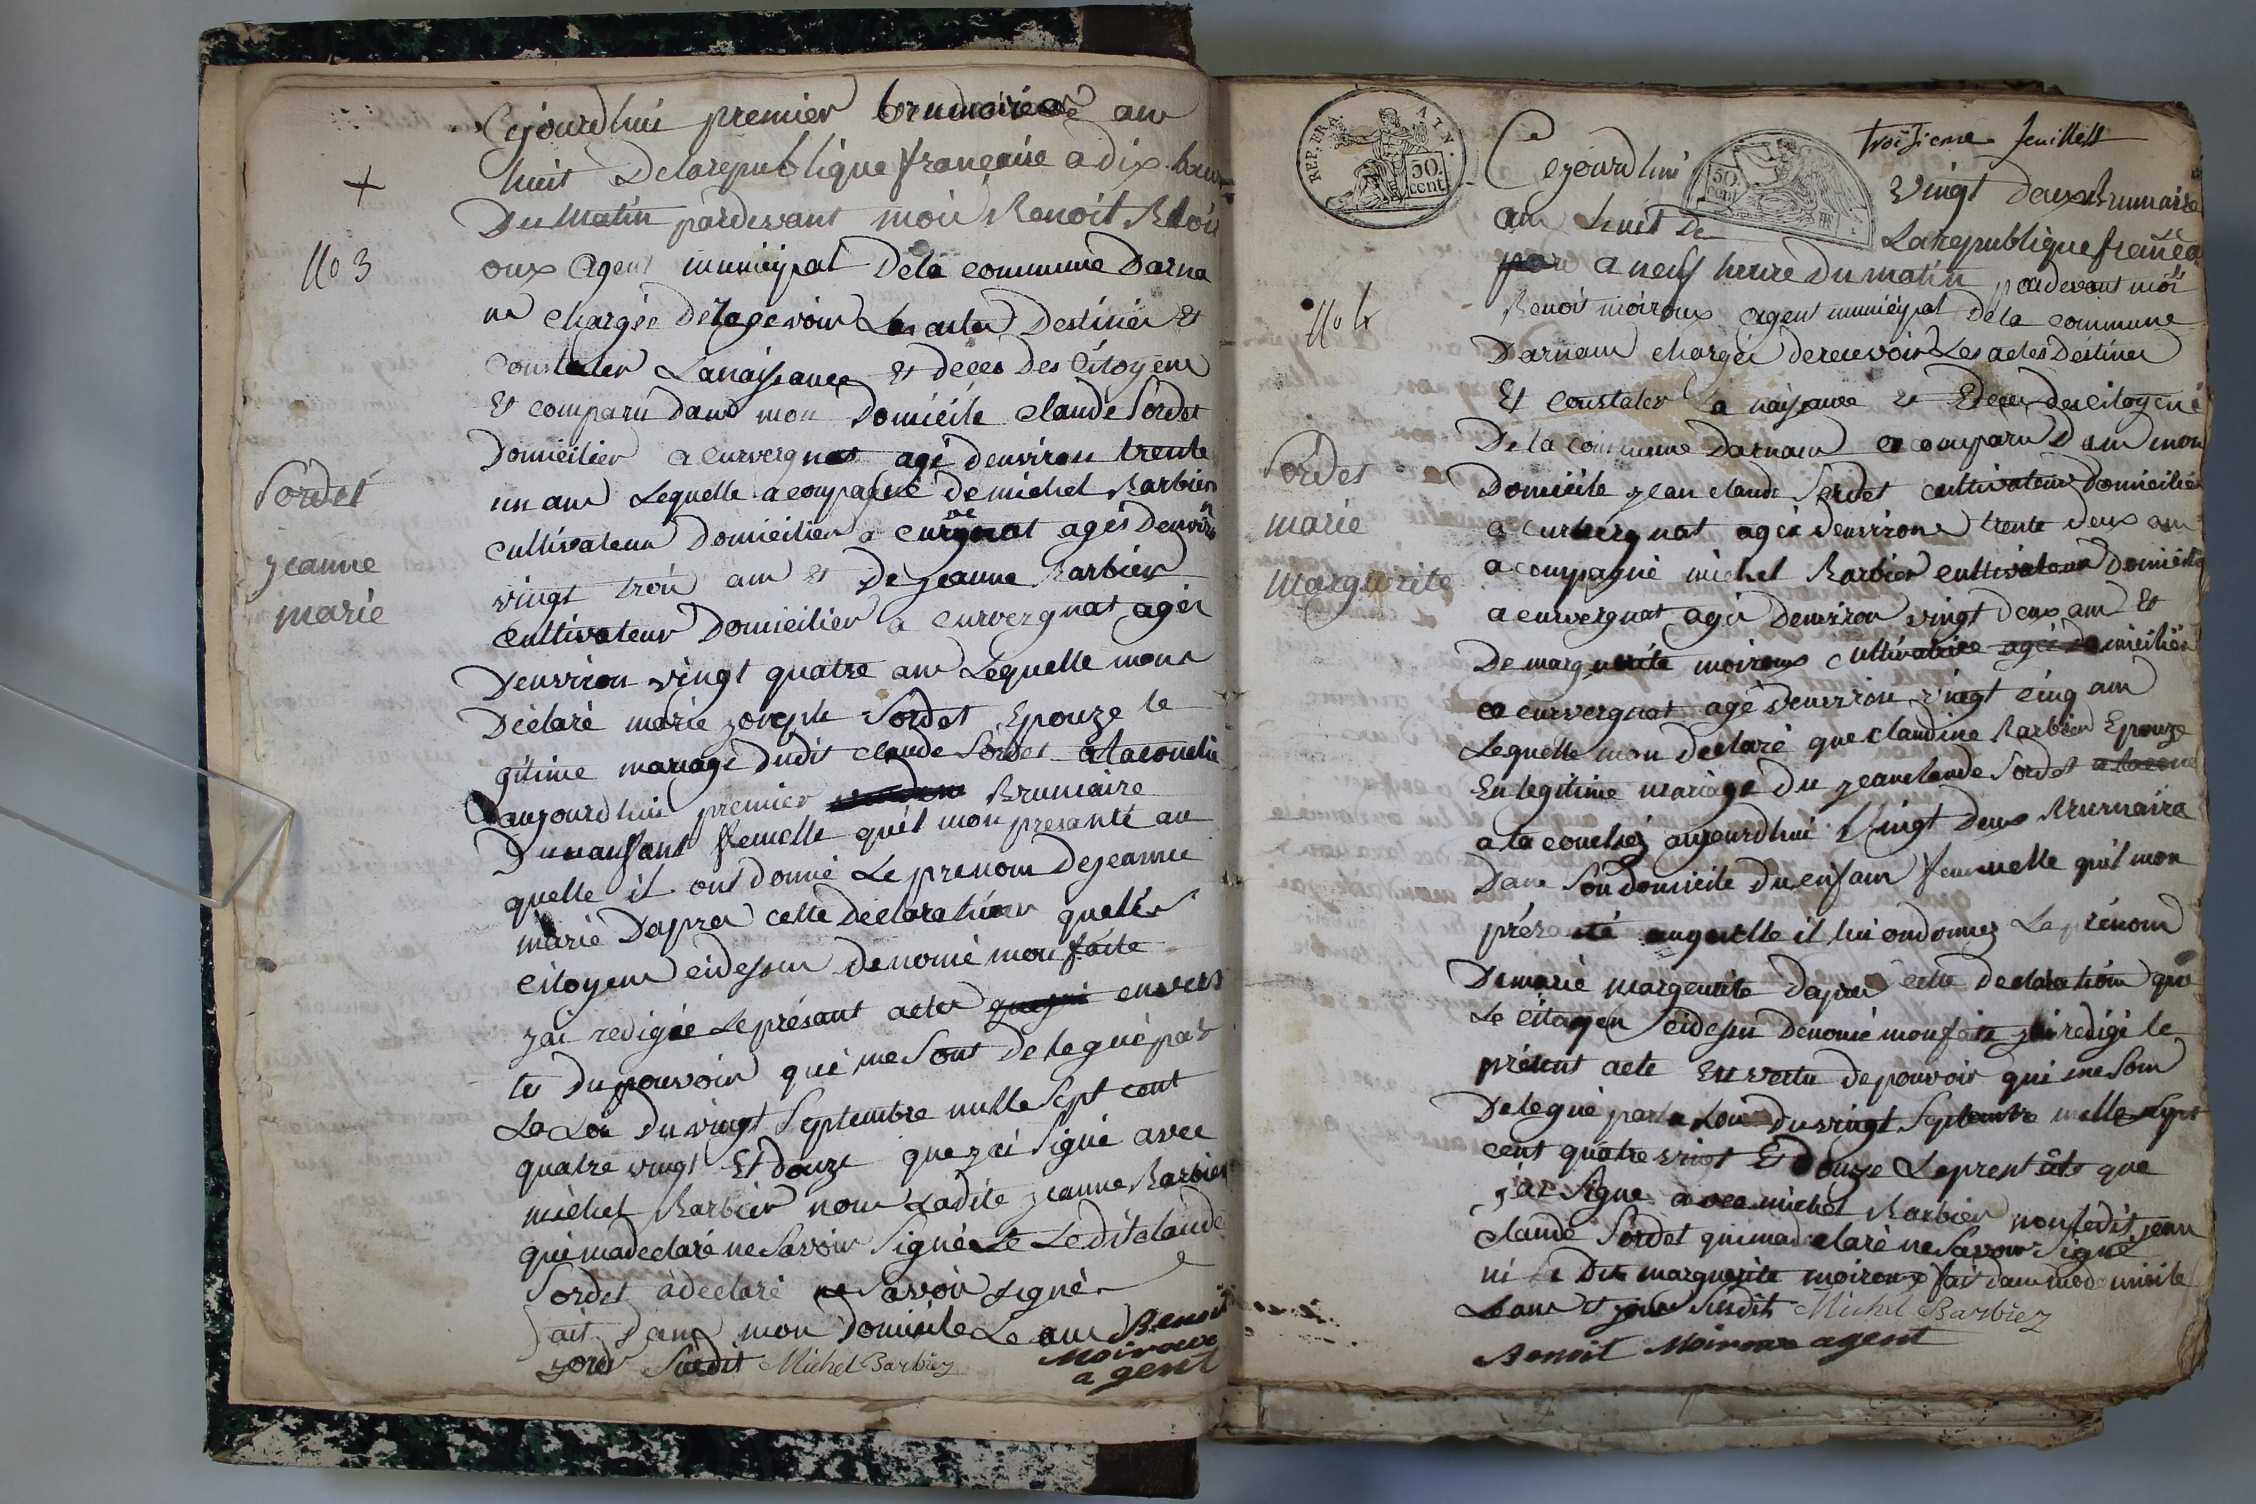 Cejourdhui premier brumaire an
huit Delarepublique francaise a dix heur
Du matin pardevant moi Benoit Moir
oux Agent municipal Dela commune Darna
N° 3
chargée de Les actes Destinés Et
constater Lanaissance Et deces Des Citoyens
Et comparu Dans mon Domicile claude Sordet
Domicilier a curvergnat agé denviron trente
un ans Lequelle acompagné de michel Barbier
cultivateur Domicilier a curvegnat agés Denviron
vingt trois ans et De jeanne Barbier
cultivateur Domicilier a curvergnat agés
Denviron vingt quatre ans Lequelle mon
Déclaré marie joseph Sordet Epouze le
gitime mariage dudit claude Sordet alacouchée
aujourdhui premier Brumaire
Dunanfant femelle quil mon presanté au
quelle il ont donné Le prenom Dejeanne
marie Dapres cette Declaration que les
citoyens cidessus denomé mon faite
jai redigée Leprésant acte en ver
tu Dupouvoir qui me sont delegué par
La Loi Du vingt Septembre mille Sept cent
quatre vingt Et Douze que jai Signé avec
michel Barbier non Ladite jeanne Barbier
qui madeclaré ne Savoir Signé Le Ledit claude
Sordet adeclaré ne Savoir Signé
fait Dans mon Domicile Le an
jour Susdit Michel Barbiez
Benoit
Moiroux
agent
Sordet
jeanne
marie
troisieme feuillet
REP. FRA. 50. cent
50. cent
Cejourdhui vingt deux Brumaire
an huit De Larepublique francai
a neuf heure Du matin pardevant moi
N° 4
Benoit moiroux agent municipal Dela commune
Darnan chargée de recevoir Les actes Destines
Et constater La naissance et Deces des citoyens
De la commune Darnan a comparu Dans mon
Domicile jean claude Sordet cultivateur Domicilié
a curvergnat agés denviron trente deux ans
acompagné michel Barbier cultivateur Domicilié
a curvergnat agés Denviron vingt deux ans Et
De marguerite moiroux cultivatrice agée Domicilié
a curvergnat agé denviron vingt cinq ans
Lequelle mon declaré que claudine Barbier Epouze
En legitime mariage Du jeanclaude Sordet
a la couchez aujourdhui vingt Deux Brumaire
Dans Son domicile Du enfant femmelle quil mon
présanté auquelle il lui ondonnez Le prénom
Demarie marguerite dapres cette declaration que
Le citoyen cidessus Denomé mon faite jai redigé le
présent acte En vertu de pouvoir qui me Son
Delegué par la Loi du vingt Septembre mille Sept
cent quatre vingt Et Douze que
jai Signé avec michel Barbier non ledit jean
claude Sordet qui ma declaré ne Savoir Signé
ni marguerite moiroux fait dans
Le an et jour Susdit Michel Barbiez
Benoit Moiroux agent
Sordet
marie
marguerite